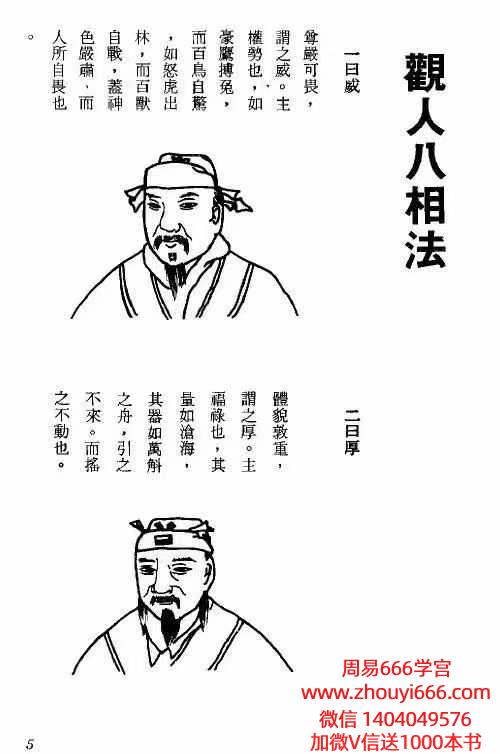 觀人八相法
一曰威
尊嚴可畏，
謂之威。主
權勢也，如
豪鷹搏兔，
而百鳥自驚
，如怒虎出
林，而百獸
自戰，蓋神
色嚴肅、而
人所自畏也
。
二曰厚
體貌敦重，
謂之厚。主
福祿也，其
量如滄海，
其器如萬斛
之舟，引之
不來。而搖
之不動也。
周易666学宫
www.zhouyi666.com
微信 1404049576
加微V信送1000本书
5